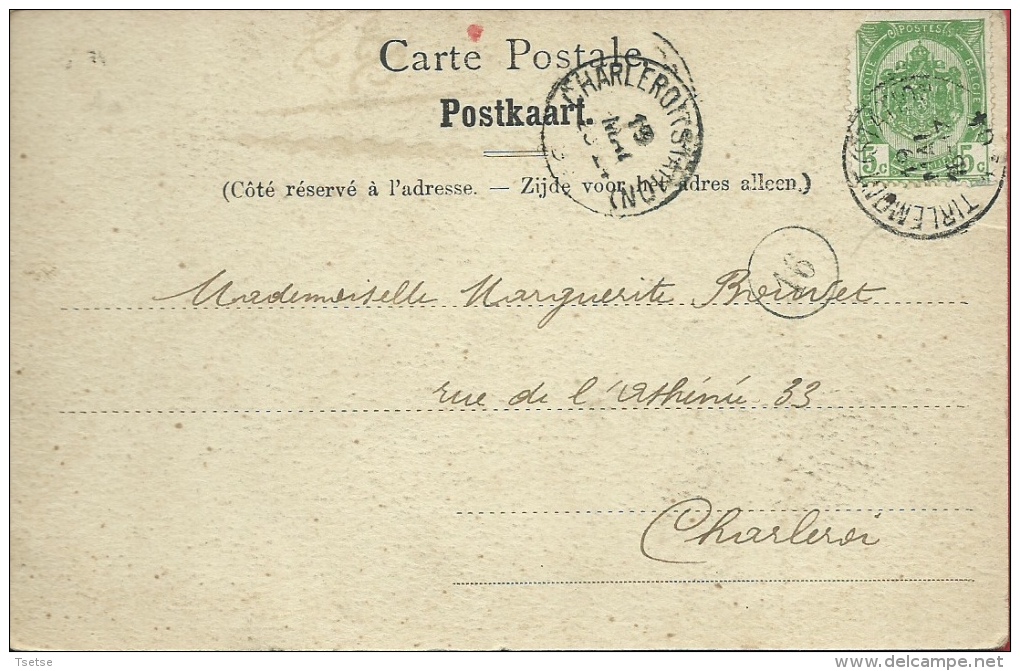 Carte Postale
Postkaart.
(Côté réservé à l'adresse. — Zijde voor het adres alleen.)
POSTES
BELGIQUE BELGIË
5c 5c
CHARLEROI (STATION)
13
MAI
TIRLEMONT
MAI
16
Mademoiselle Marguerite
rue de l'Athénée 33
Charleroi
Tsetse
www.delcampe.net